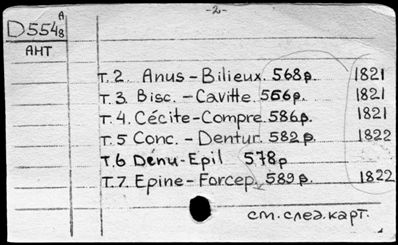 -2-
D554/8 A
АНТ
Т.2. Anus-Bilieux. 568р. 1821
Т.3. Bisc.-Cavitte. 556р. 1821
Т.4. Cécité-Compre. 586р. 1821
Т.5 Conc.-Dentur. 582р. 1822
Т.6 Dénu-Epil 578р
Т.7. Epine-Forcep. 589р. 1822
см.след.карт.